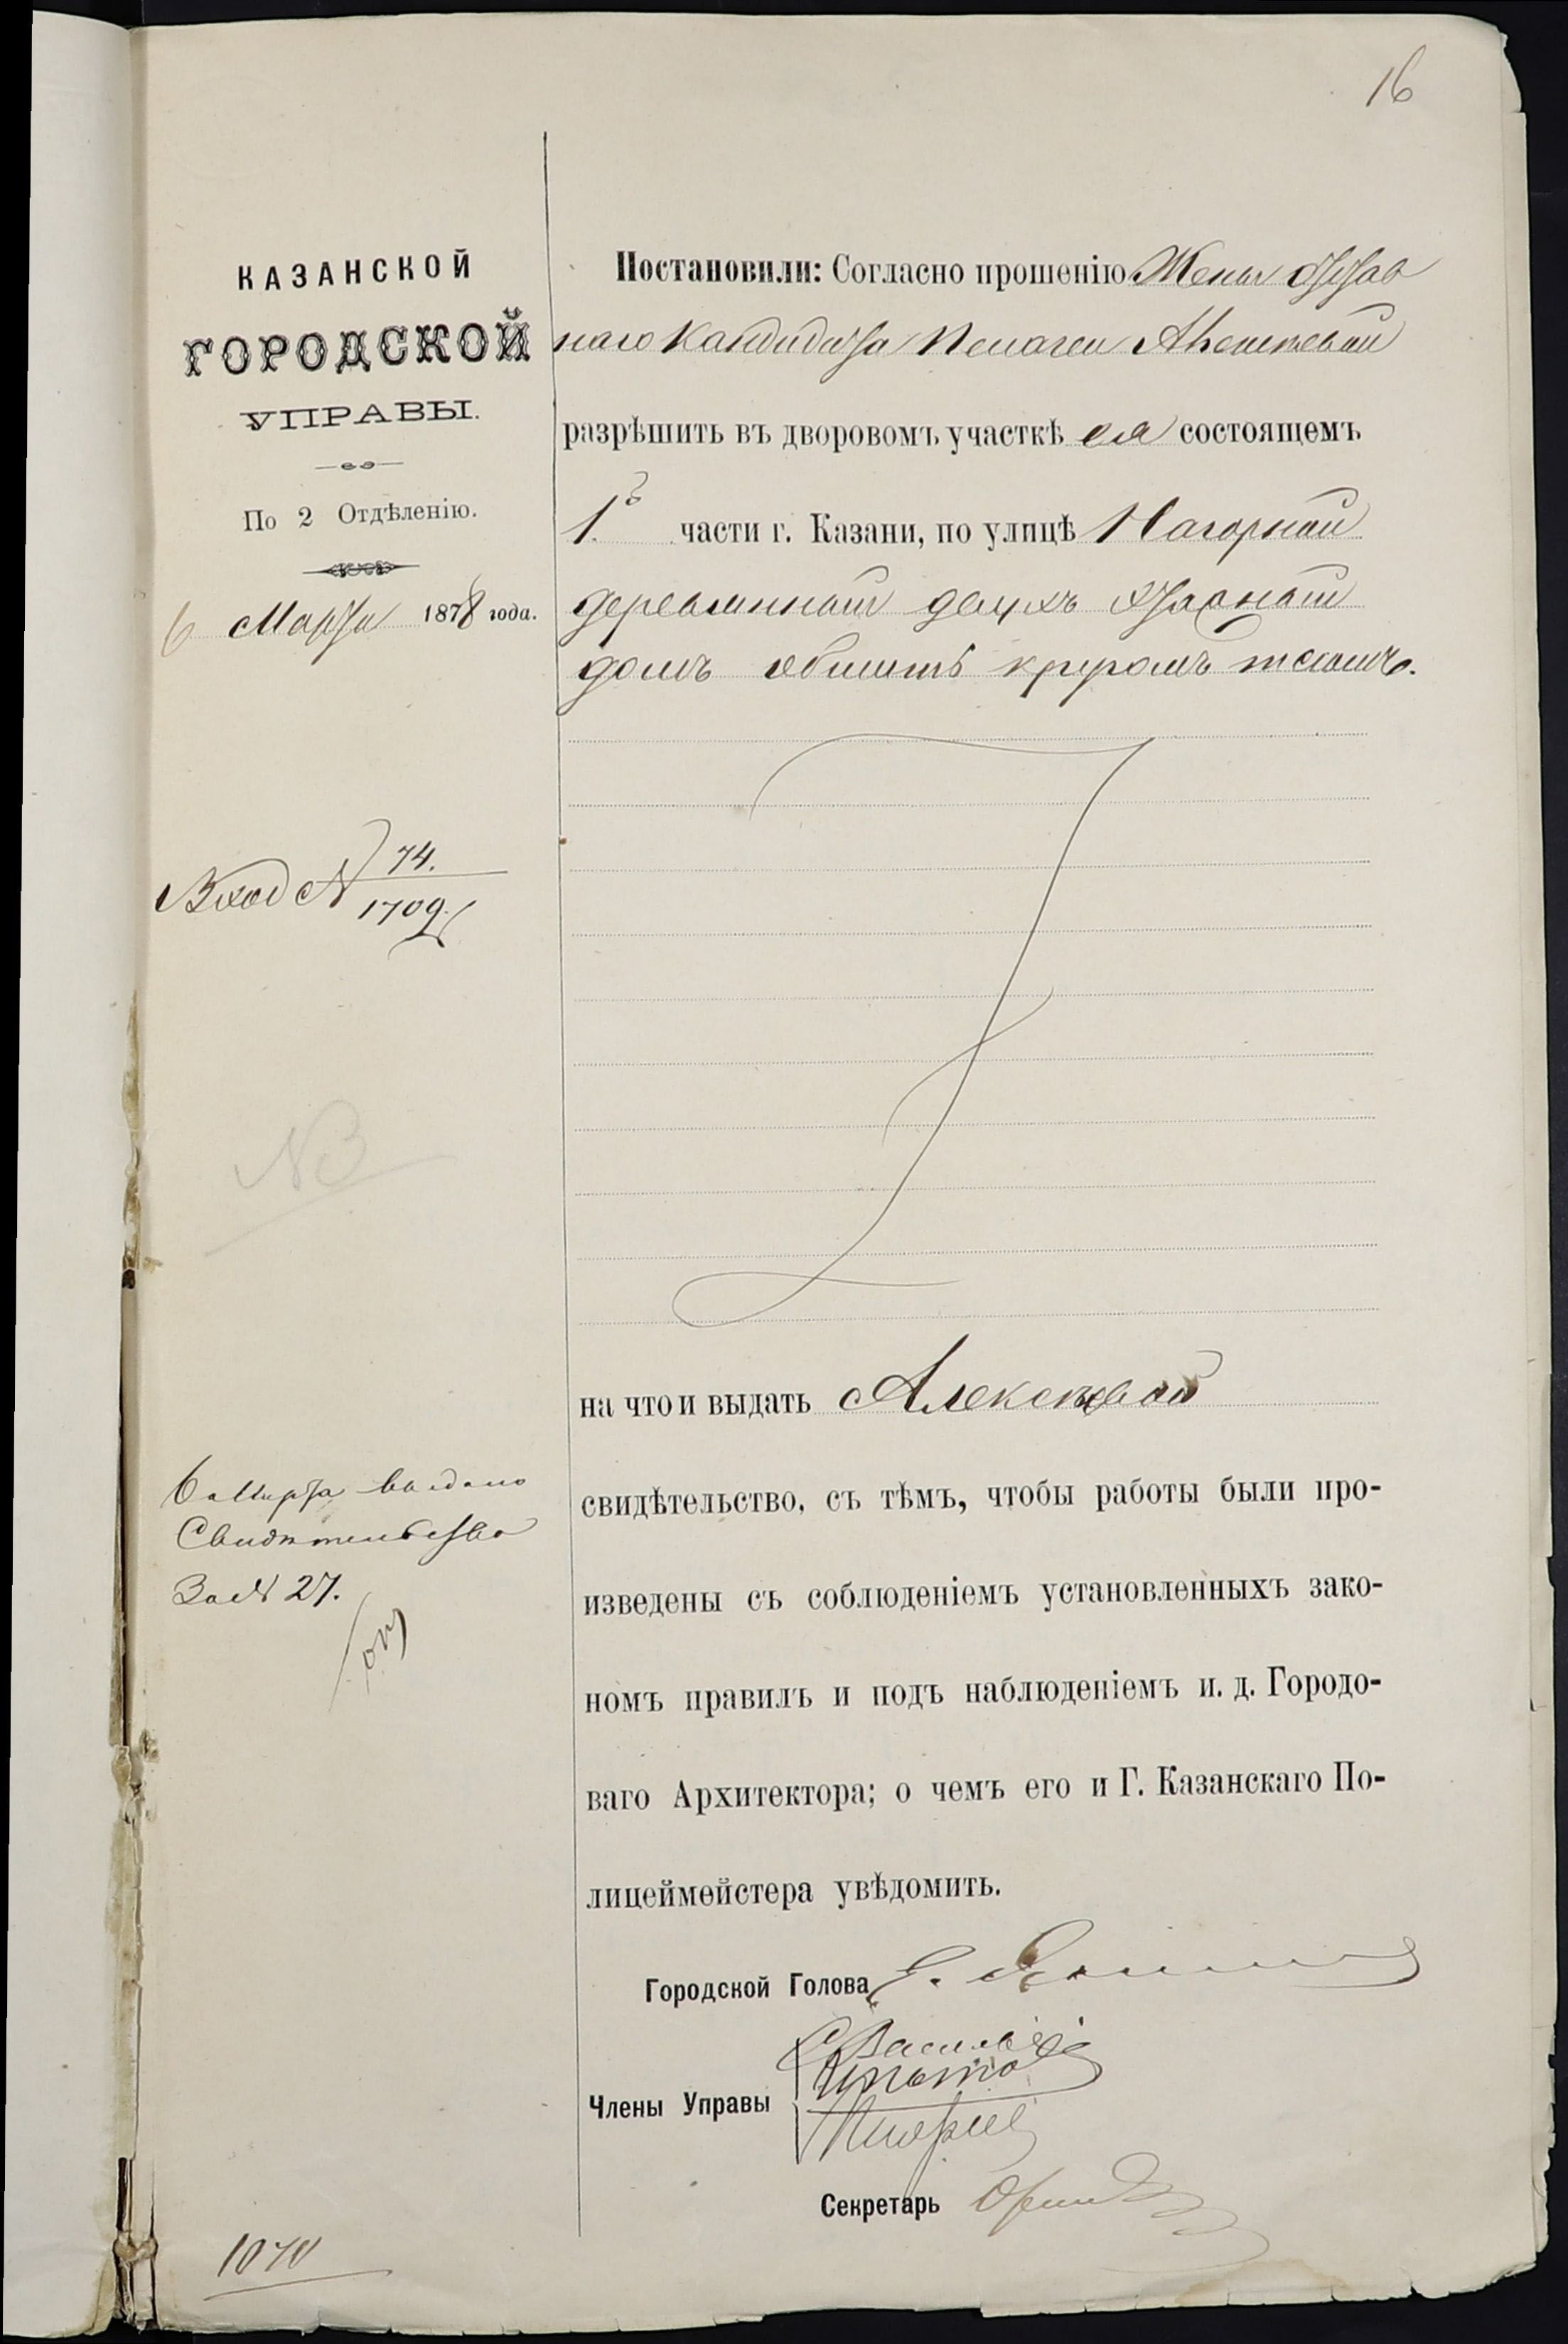 16
КАЗАНСКОЙ
ГОРОДСКОЙ
УПРАВЫ.
По 2 Отдѣленію.
6 Марта 1878 года.
Вход № 74.
1709
NB
6 Марта выдано
Свидѣтельство
За № 27.
1070
Постановили: Согласно прошенію Жены отстав
наго кандидата Пелагеи Алексѣевой
разрѣшить въ дворовомъ участкѣ ея состоящемъ
1й части г. Казани, по улицѣ Нагорной
деревянный двухъ этажный
домъ обшить кругомъ тесомъ.
на что и выдать Алексѣевой
свидѣтельство, съ тѣмъ, чтобы работы были про-
изведены съ соблюденіемъ установленныхъ зако-
номъ правилъ и подъ наблюденіемъ и. д. Городо-
ваго Архитектора; о чемъ его и Г. Казанскаго По-
лицеймейстера увѣдомить.
Городской Голова
Члены Управы
Секретарь